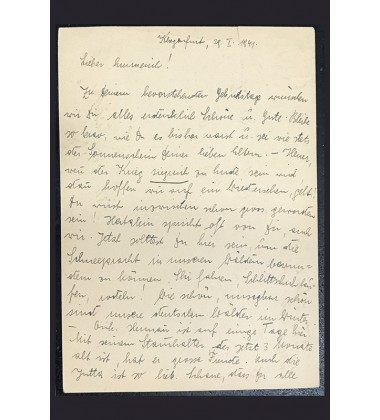 Klagenfurt, 29. I. 1941.
Lieber !
Zu Deinem bevorstehenden Geburtstag wünschen
wir Dir alles erdenklich Schöne u. Gute. Bleibe
so brav, wie Du es bisher warst u. sei wie stets
der Sonnenschein Deiner lieben Eltern. – Heuer,
wenn der Krieg siegreich zu Ende sein wird,
dann hoffen wir auf ein Wiedersehen, gelt!
Du wirst inzwischen schon gross geworden
sein! spricht oft von Dir, auch
wir. Jetzt solltest Du hier sein, um die
Schneepracht in unseren Wäldern bewun-
dern zu können. Ski fahren, Schlittschuhlau-
fen, rodeln! Wie schön, unsagbar schön
sind unsere deutschen Wälder im Winter.
Onk. Hermann ist auf einige Tage hier.
Mit seinem Stammhalter, der jetzt 3 Monate
alt ist, hat er grosse Freude. Auch die
Jutta ist so lieb. Schade, dass Ihr alle